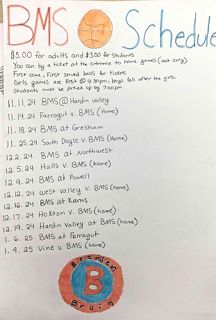 BMS Schedule
$5.00 for adults and $3.00 for students
You can by a ticket at the entrance to home games (cash only)
First come, First served basis for tickets
Girls games are first @ 4:30pm, boys follow after the girls.
Students must be picked up by 7:00pm
11.11.24 BMS @ Hardin valley
11.14.24 Farragut v. BMS (Home)
11.18.24 BMS at Gresham
11.25.24 South Doyle v. BMS (Home)
12.2.24 BMS at Northwest
12.5.24 Halls v. BMS (home)
12.9.24 BMS at Powell
12.12.24 West valley v. BMS (home)
12.16.24 BMS at Karns
12.17.24 Holston v. BMS (home)
12.19.24 Hardin Valley at BMS (home)
1.6.25 BMS at Farragut
1.9.25 Vine v. BMS (home)
Bearden
B
Bruin